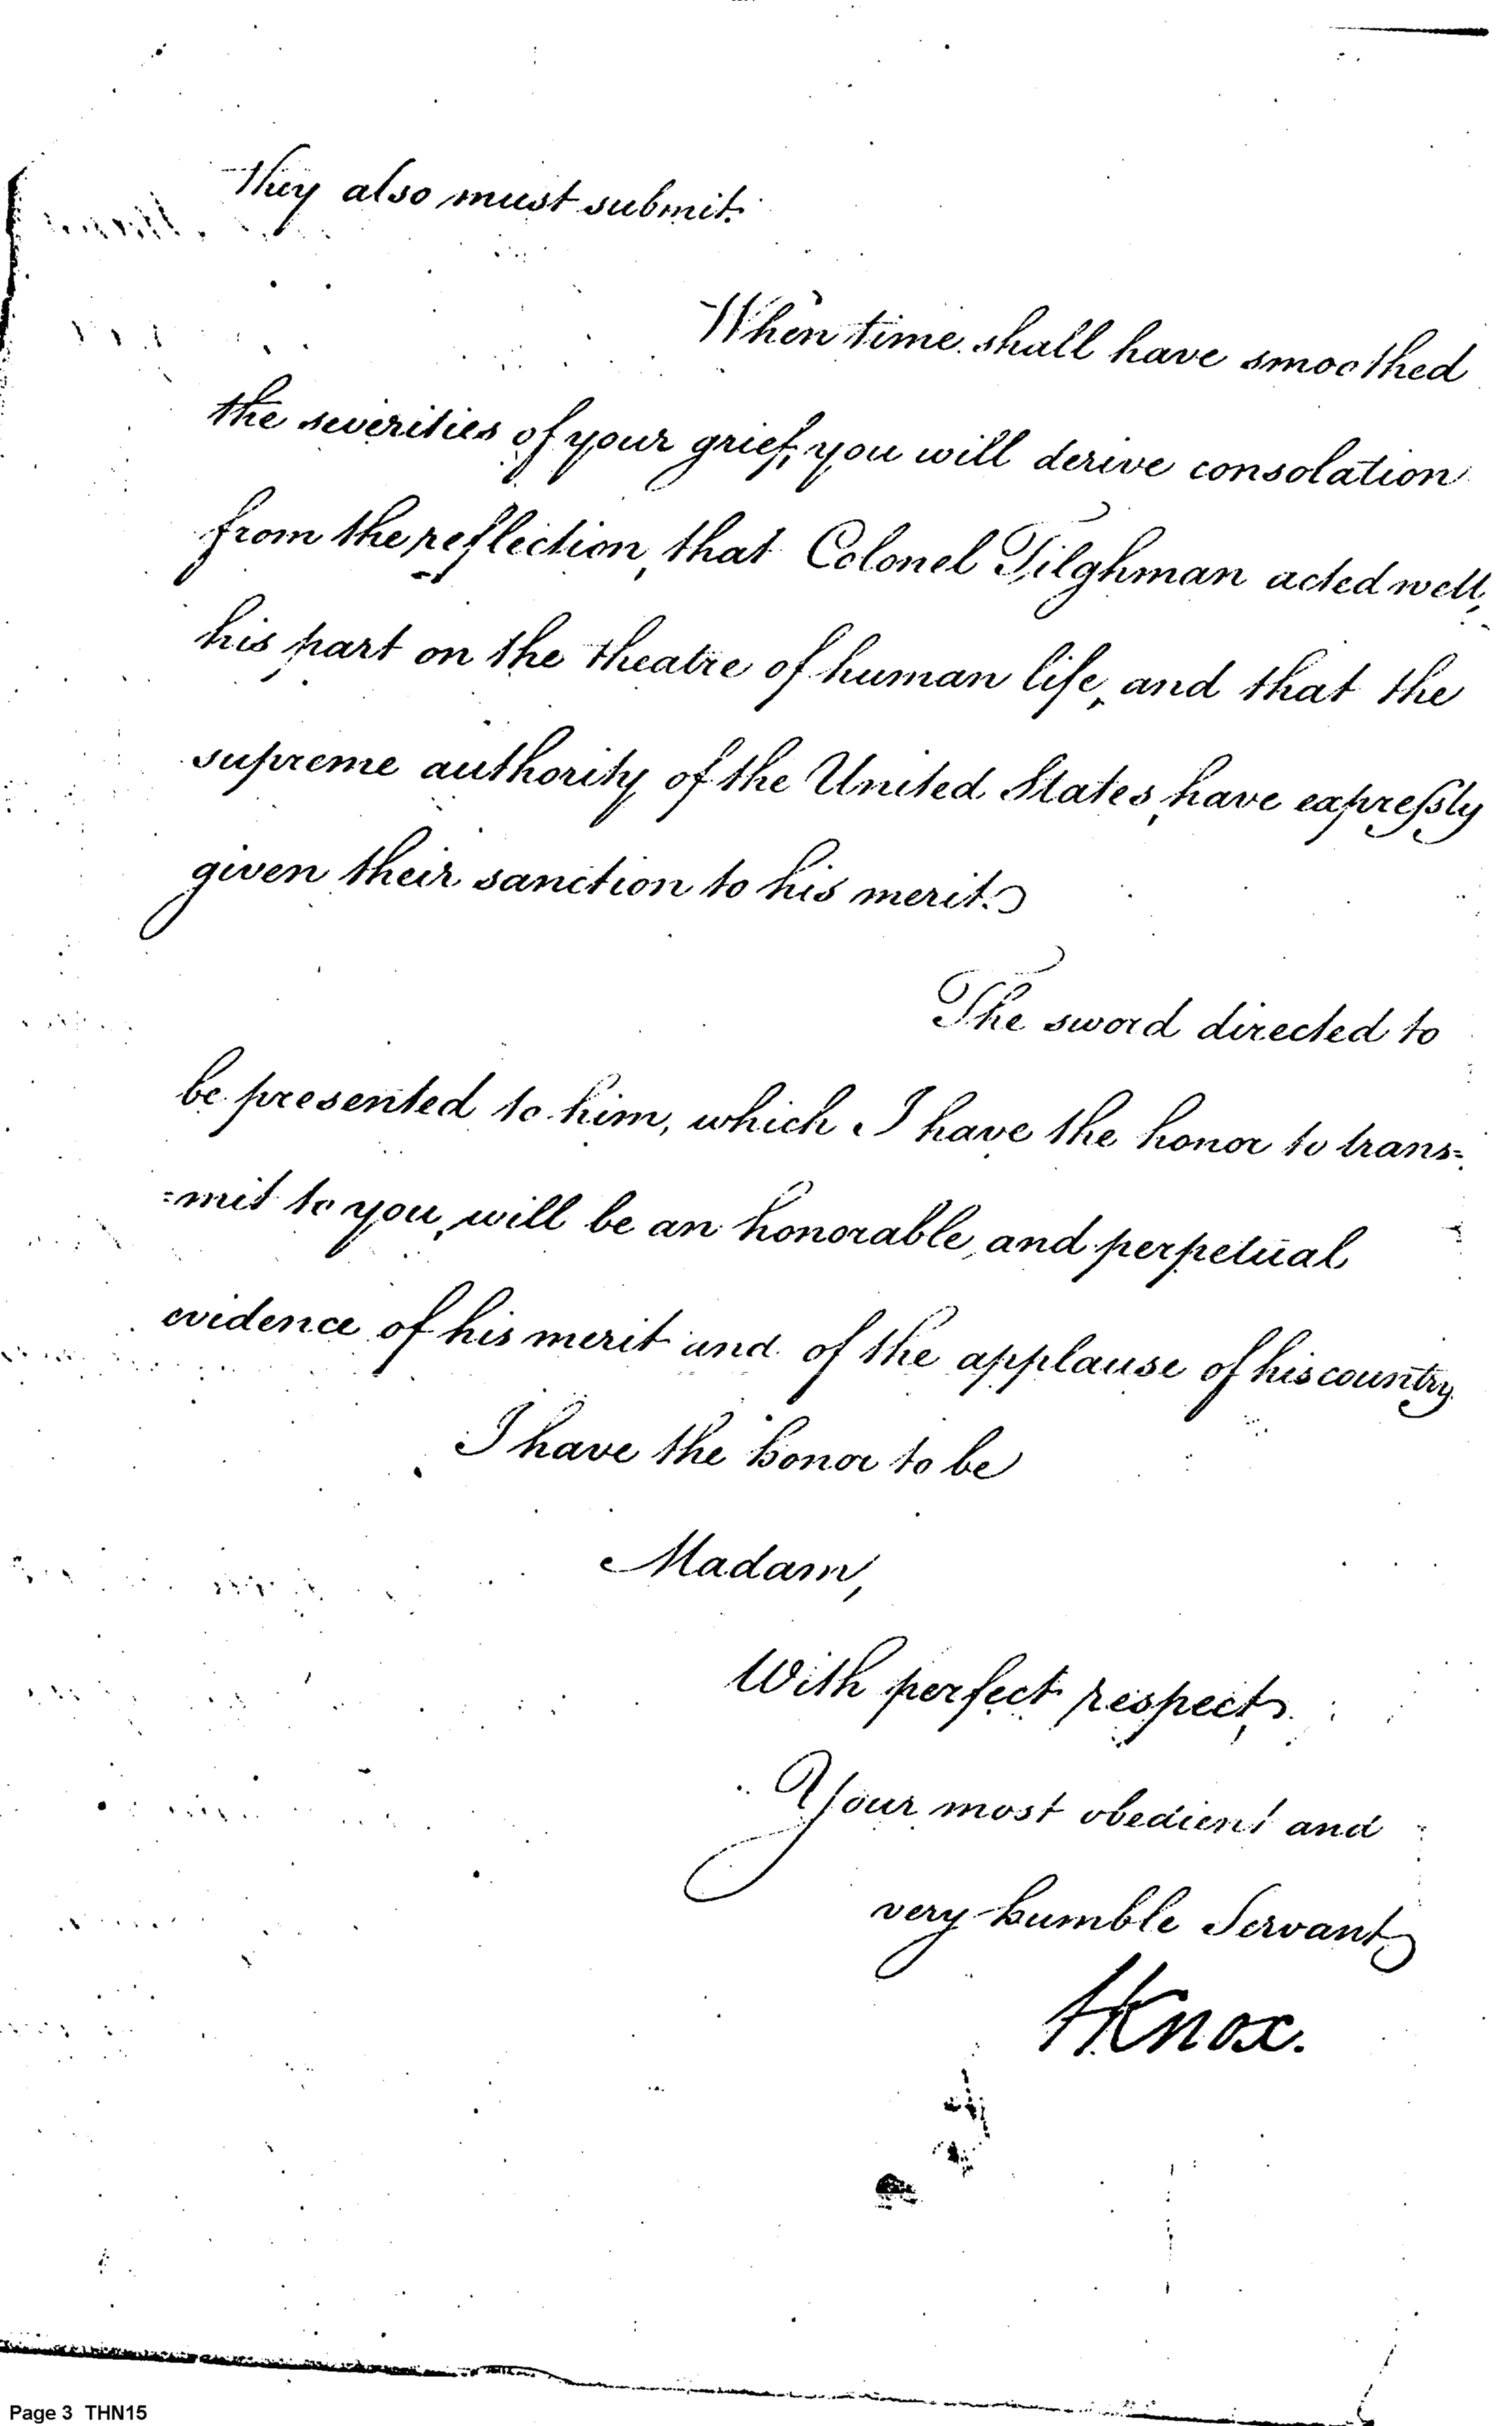 they also must submit.
When time shall have smoothed
the severities of your grief, you will derive consolation
from the reflection, that Colonel Tilghman acted well,
his part on the theatre of human life, and that the
supreme authority of the United States, have expreſsly
given their sanction to his merit.
The sword directed to
be presented to him, which I have the honor to trans=
=mit to you, will be an honorable, and perpetual
evidence of his merit and of the applause of his country.
I have the honor to be
Madam,
With perfect respect,
Your most obedient and
very humble Servant,
HKnox.
Page 3 THN15